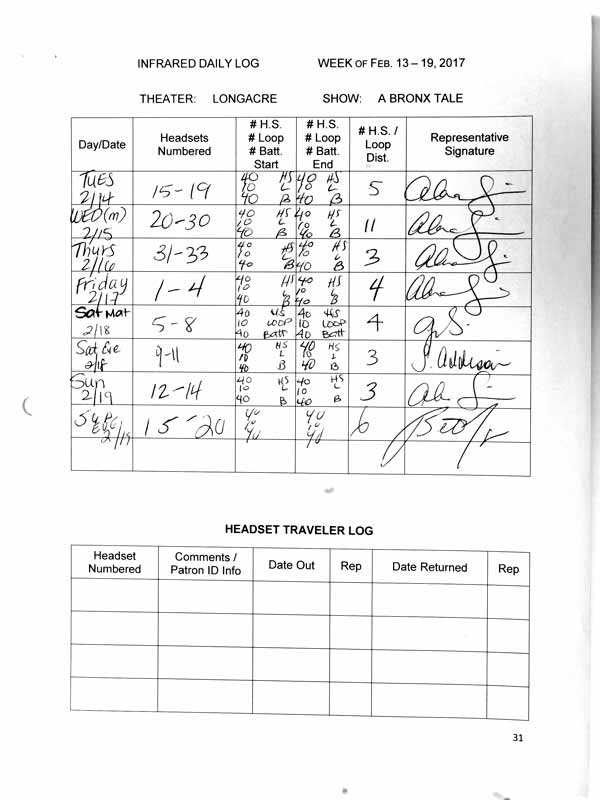 INFRARED DAILY LOG WEEK OF FEB. 13 – 19, 2017
THEATER: LONGACRE SHOW: A BRONX TALE
Day/Date Headsets Numbered # H.S. # Loop # Batt. Start # H.S. # Loop # Batt. End # H.S. / Loop Dist. Representative Signature
TUES 2/14 15-19 40 HS 10 L 40 B 40 HS 10 L 40 B 5
WED(m) 2/15 20-30 40 HS 10 L 40 B 40 HS 10 L 40 B 11
Thurs 2/16 31-33 40 HS 10 L 40 B 40 HS 10 L 40 B 3
Friday 2/17 1-4 40 HS 10 L 40 B 40 HS 10 L 40 B 4
Sat Mat 2/18 5-8 40 HS 10 LOOP 40 Batt 40 HS 10 LOOP 40 Batt 4
Sat Eve 2/18 9-11 40 HS 10 L 40 B 40 HS 10 L 40 B 3 S. Addison
Sun 2/19 12-14 40 HS 10 L 40 B 40 HS 10 L 40 B 3
2/19 15-20 40 10 40 40 10 40 6
HEADSET TRAVELER LOG
Headset Numbered Comments / Patron ID Info Date Out Rep Date Returned Rep
31